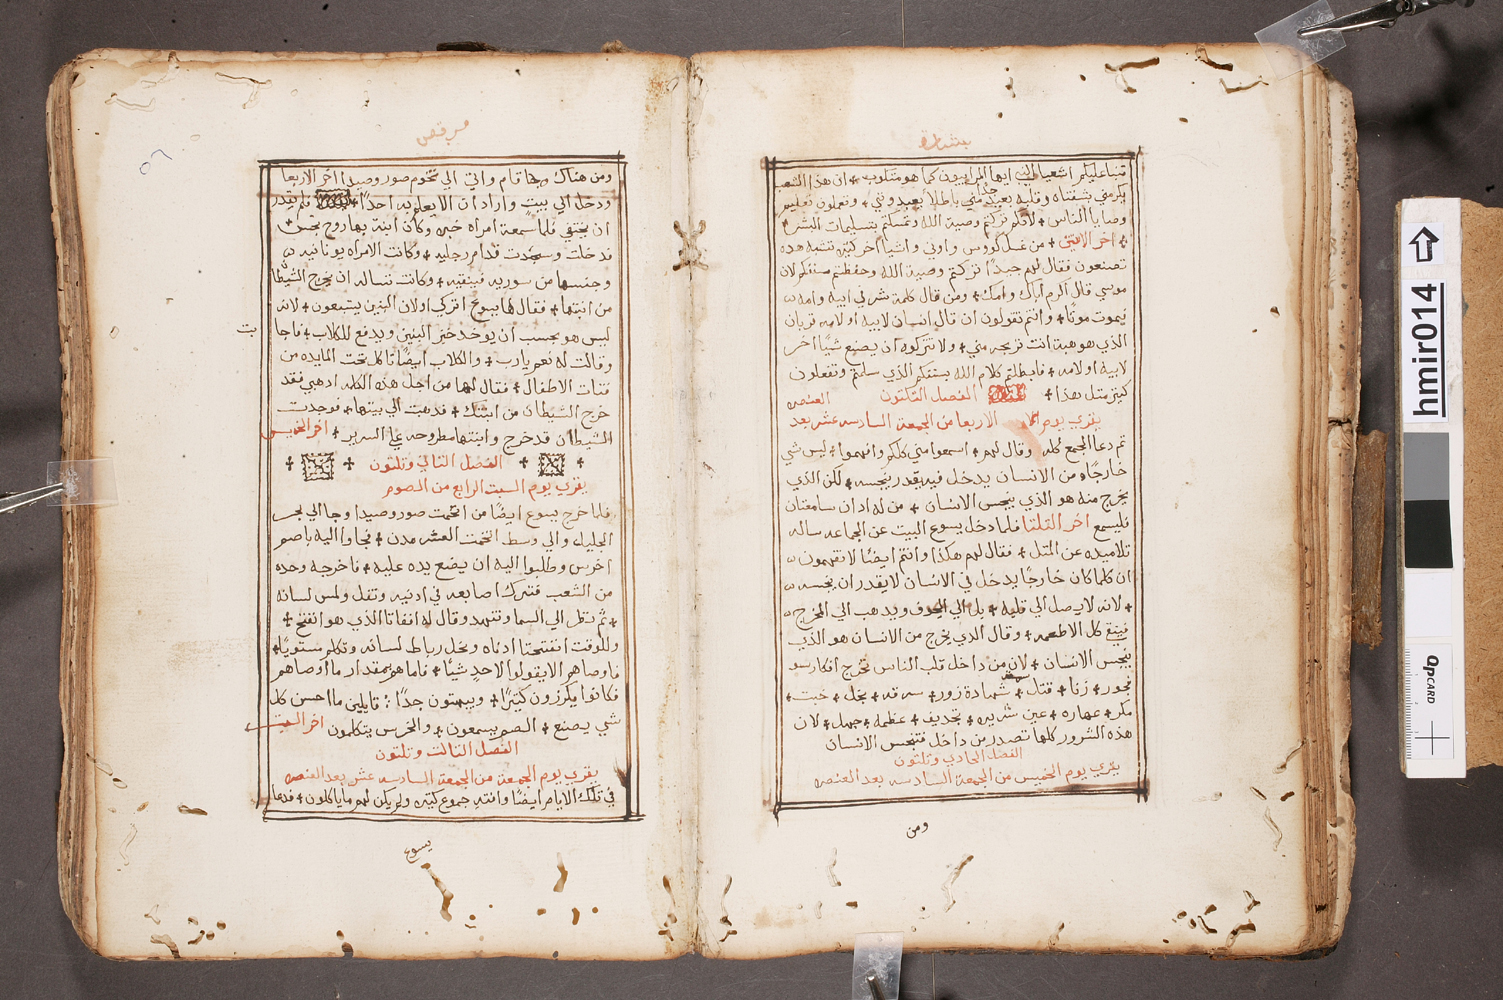 بشارة
تنبا عليكم اشعيا النبي ايها المرايون كما هو مكتوب ان هذا الشعب
يكرمني بشفتاه وقلبه بعيد جدا مني باطلا يعبدوني وتعلمون تعليم
وصايا الناس لانكم تركتم وصية الله وتمسكتم بتسليمات البشر
اخر الاثنين من غسل كووس واواني واشيا اخر كثير تشبه هذه
تصنعون فقال لهم جيدا تركتم وصية الله وحفظتم سننكم لان
موسي قال اكرم اباك وامك ومن قال كلمة شر في ابيه وامه
يموت موتا وانتم تقولون ان قال انسان لابيه او لامه قربان
الذي هو هبة انت تربحه مني ولا تتركوه ان يصنع شيا اخر
لابيه او لامه فابطلتم كلام الله بسننكم الذي سلمتم وتفعلون
كثير مثل هذا الفصل الثلثون العنصره
يقري يوم الاربعا من الجمعة السادسه عشر بعد
ثم دعا الجمع كله وقال لهم اسمعوا مني كلكم وافهموا ليس شي
خارجا من الانسان يدخل فيه يقدر ينجسه لكن الذي
يخرج منه هو الذي ينجس الانسان من له اذان سامعتان
فليسمع اخر الثلثا فلما دخل يسوع البيت عن الجماعه ساله
تلاميذه عن المثل فقال لهم هكذا وانتم ايضا لا تفهمون
ان كلما كان خارجا يدخل في الانسان لا يقدر ان ينجسه
لانه لا يصل الي قلبه بل الي الجوف ويذهب الي المخرج
فينقي كل الاطعمه وقال الذي يخرج من الانسان هو الذي
ينجس الانسان لان من داخل قلب الناس تخرج افكار سو
فجور زنا قتل شهادة زور سرقه بخل خبث
مكر عهاره عين شريره تجديف عظمه جهل لان
هذه الشرور كلها تصدر من داخل فتنجس الانسان
الفصل الحادي وثلثون
يقري يوم الخميس من الجمعة السادسه بعد العنصره
ومن
مرقص
٥٦
ومن هناك قام واتي الي تخوم صور وصيدا اخر الاربعا
ودخل الي بيت واراد ان لا يعلم به احدا فلم يقدر
ان يختفي فلما سمعة امراه خبره وكان ابنة بها روح نجس
فدخلت وسجدت قدام رجليه وكانت الامراه يونانيه
وجنسها من سوريه فينيقيه وكانت تساله ان يخرج الشيطان
من ابنتها فقال لها يسوع اتركي اولا البنين يشبعون لانه
ليس هو بحسب ان يوخذ خبز البنين ويدفع للكلاب فاجابت
وقالت له نعم يارب والكلاب ايضا تاكل تحت المايده من
فتات الاطفال فقال لها من اجل هذه الكلمه اذهبي فقد
خرج الشيطان من ابنتك فذهبت الي بيتها فوجدت
الشيطان قد خرج وابنتها مطروحه علي السرير اخر الخميس
الفصل الثاني وثلثون
يقري يوم السبت الرابع من الصوم
فلما خرج يسوع ايضا من تخمت صور وصيدا وجا الي بحر
الجليل والي وسط تخمت العشر مدن فجاوا اليه باصم
اخرس وطلبوا اليه ان يضع يده عليه فاخرجه وحده
من الشعب فترك اصابعه في اذنيه وتفل ولمس لسانه
ثم نظر الي السما وتنهد وقال له افاتا الذي هو انفتح
وللوقت انفتحتا اذناه ونحل رباط لسانه وتكلم مستويا
فاوصاهم الا يقولوا لاحد شيا فاما هم بمقدار ما اوصاهم
فكانوا يكرزون كثيرا ويبهتون جدا قايلين ما احسن كل
شي يصنع الصم يسمعون والخرس يتكلمون اخر السبت
الفصل الثالث وثلثون
يقري يوم الجمعة من الجمعة السادسه عشر بعد العنصره
في تلك الايام ايضا وانته جموع كثيره ولم يكن لهم ما ياكلون فدعا
يسوع
hmir014
QPCARD